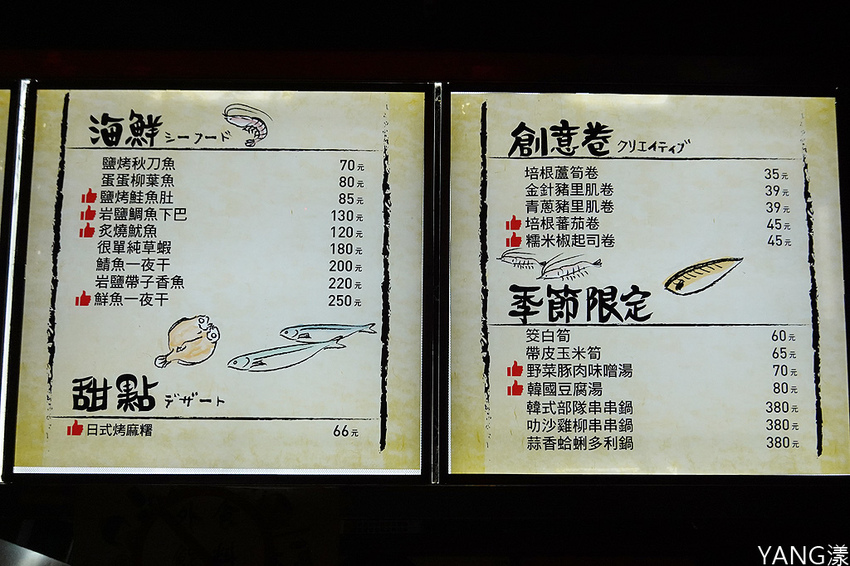 海鮮 シーフード
鹽烤秋刀魚 70元
蛋蛋柳葉魚 80元
鹽烤鮭魚肚 85元
岩鹽鯛魚下巴 130元
炙燒魷魚 120元
很單純草蝦 180元
鯖魚一夜干 200元
岩鹽帶子香魚 220元
鮮魚一夜干 250元
甜點 デザート
日式烤麻糬 66元
創意卷 クリエイティブ
培根蘆筍卷 35元
金針豬里肌卷 39元
青蔥豬里肌卷 39元
培根蕃茄卷 45元
糯米椒起司卷 45元
季節限定
筊白筍 60元
帶皮玉米筍 65元
野菜豚肉味噌湯 70元
韓國豆腐湯 80元
韓式部隊串串鍋 380元
叻沙雞柳串串鍋 380元
蒜香蛤蜊多利鍋 380元
YANG漾